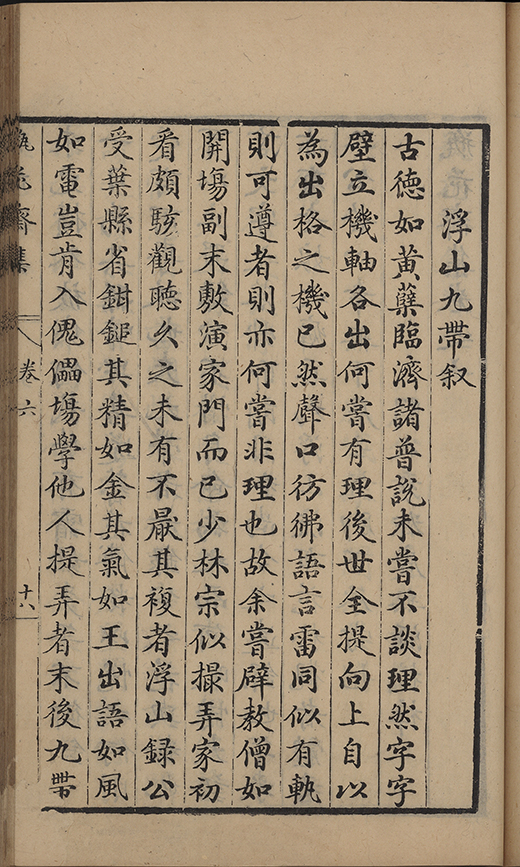 浮山九帶叙
古德如黃蘗臨濟諸普說未嘗不談理然字字
壁立機軸各出何嘗有理後世全提向上自以
為出格之機已然聲口彷彿語言雷同似有軌
則可遵者則亦何嘗非理也故余嘗辟教僧如
開塲副末敷演家門而已少林宗似撮弄家初
看頗駭觀聽久之未有不厭其複者浮山録公
受葉縣省鉗鎚其精如金其氣如王出語如風
如電豈肯入傀儡塲學他人提弄者末後九帶
瓶花齋集 卷六 十八